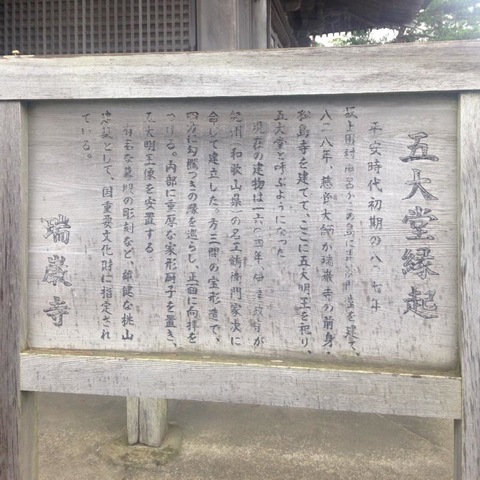 五大堂縁起
平安時代初期の八〇七年
坂上田村麻呂がこの島に毘沙門堂を建て、
八二八年、慈覚大師が瑞巌寺の前身・
松島寺を建てて、ここに五大明王を祀り、
五大堂と呼ぶようになった。
現在の建物は一六〇四年伊達政宗が
紀州(和歌山県)の名工鶴衛門家次に
命じて建立した。方三間の宝形造で、
四方に勾欄つきの縁を巡らし、正面に向拝を
つける。内部に重厚な家形厨子を置き、
五大明王像を安置する。
の彫刻など、雄健な桃山
建築として、国重要文化財に指定され
ている。
瑞巌寺